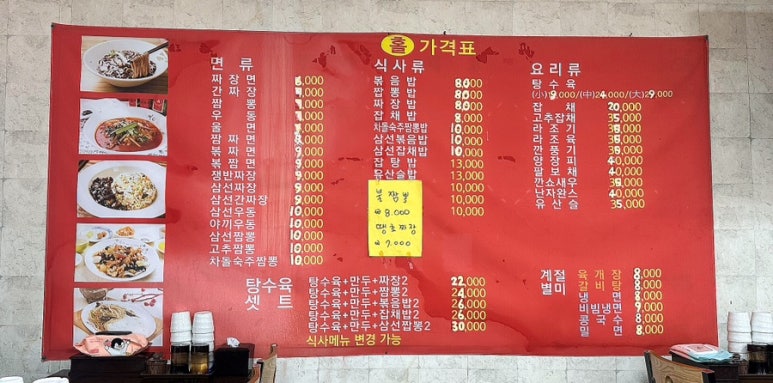 홀 가격표
면 류
짜 장 면 6,000
간 짜 장 7,000
짬 뽕 7,000
우 동 7,000
울 면 7,000
짬 짜 면 9,000
볶 짜 면 9,000
볶 짬 면 9,000
쟁반짜장 9,000
삼선짜장 9,000
삼선간짜장 9,000
삼선우동 10,000
야끼우동 10,000
삼선짬뽕 10,000
고추짬뽕 10,000
차돌숙주짬뽕 10,000
식 사 류
볶 음 밥 8,000
짬 뽕 밥 8,000
짜 장 밥 8,000
잡 채 밥 8,000
차돌숙주짬뽕밥 10,000
삼선볶음밥 10,000
삼선잡채밥 10,000
잡 탕 밥 13,000
유산슬밥 13,000
10,000
10,000
10,000
불짬뽕
8,000
땡초짜장
7,000
요 리 류
탕 수 육
(小) /(中)24,000/(大)29,000
잡 채 20,000
고추잡채 35,000
라 조 기
라 조 육
깐 풍 기
양 장 피 40,000
팔 보 채 40,000
깐쇼새우
난자완스 40,000
유 산 슬 35,000
탕수육 셋 트
탕수육+만두+짜장2 22,000
탕수육+만두+짬뽕2 24,000
탕수육+만두+볶음밥2 26,000
탕수육+만두+잡채밥2 26,000
탕수육+만두+삼선짬뽕2 30,000
식사메뉴 변경 가능
계절 별미
육 개 장 8,000
갈 비 탕 8,000
냉 면 8,000
비빔냉면 9,000
콩 국 수 8,000
밀 면 8,000